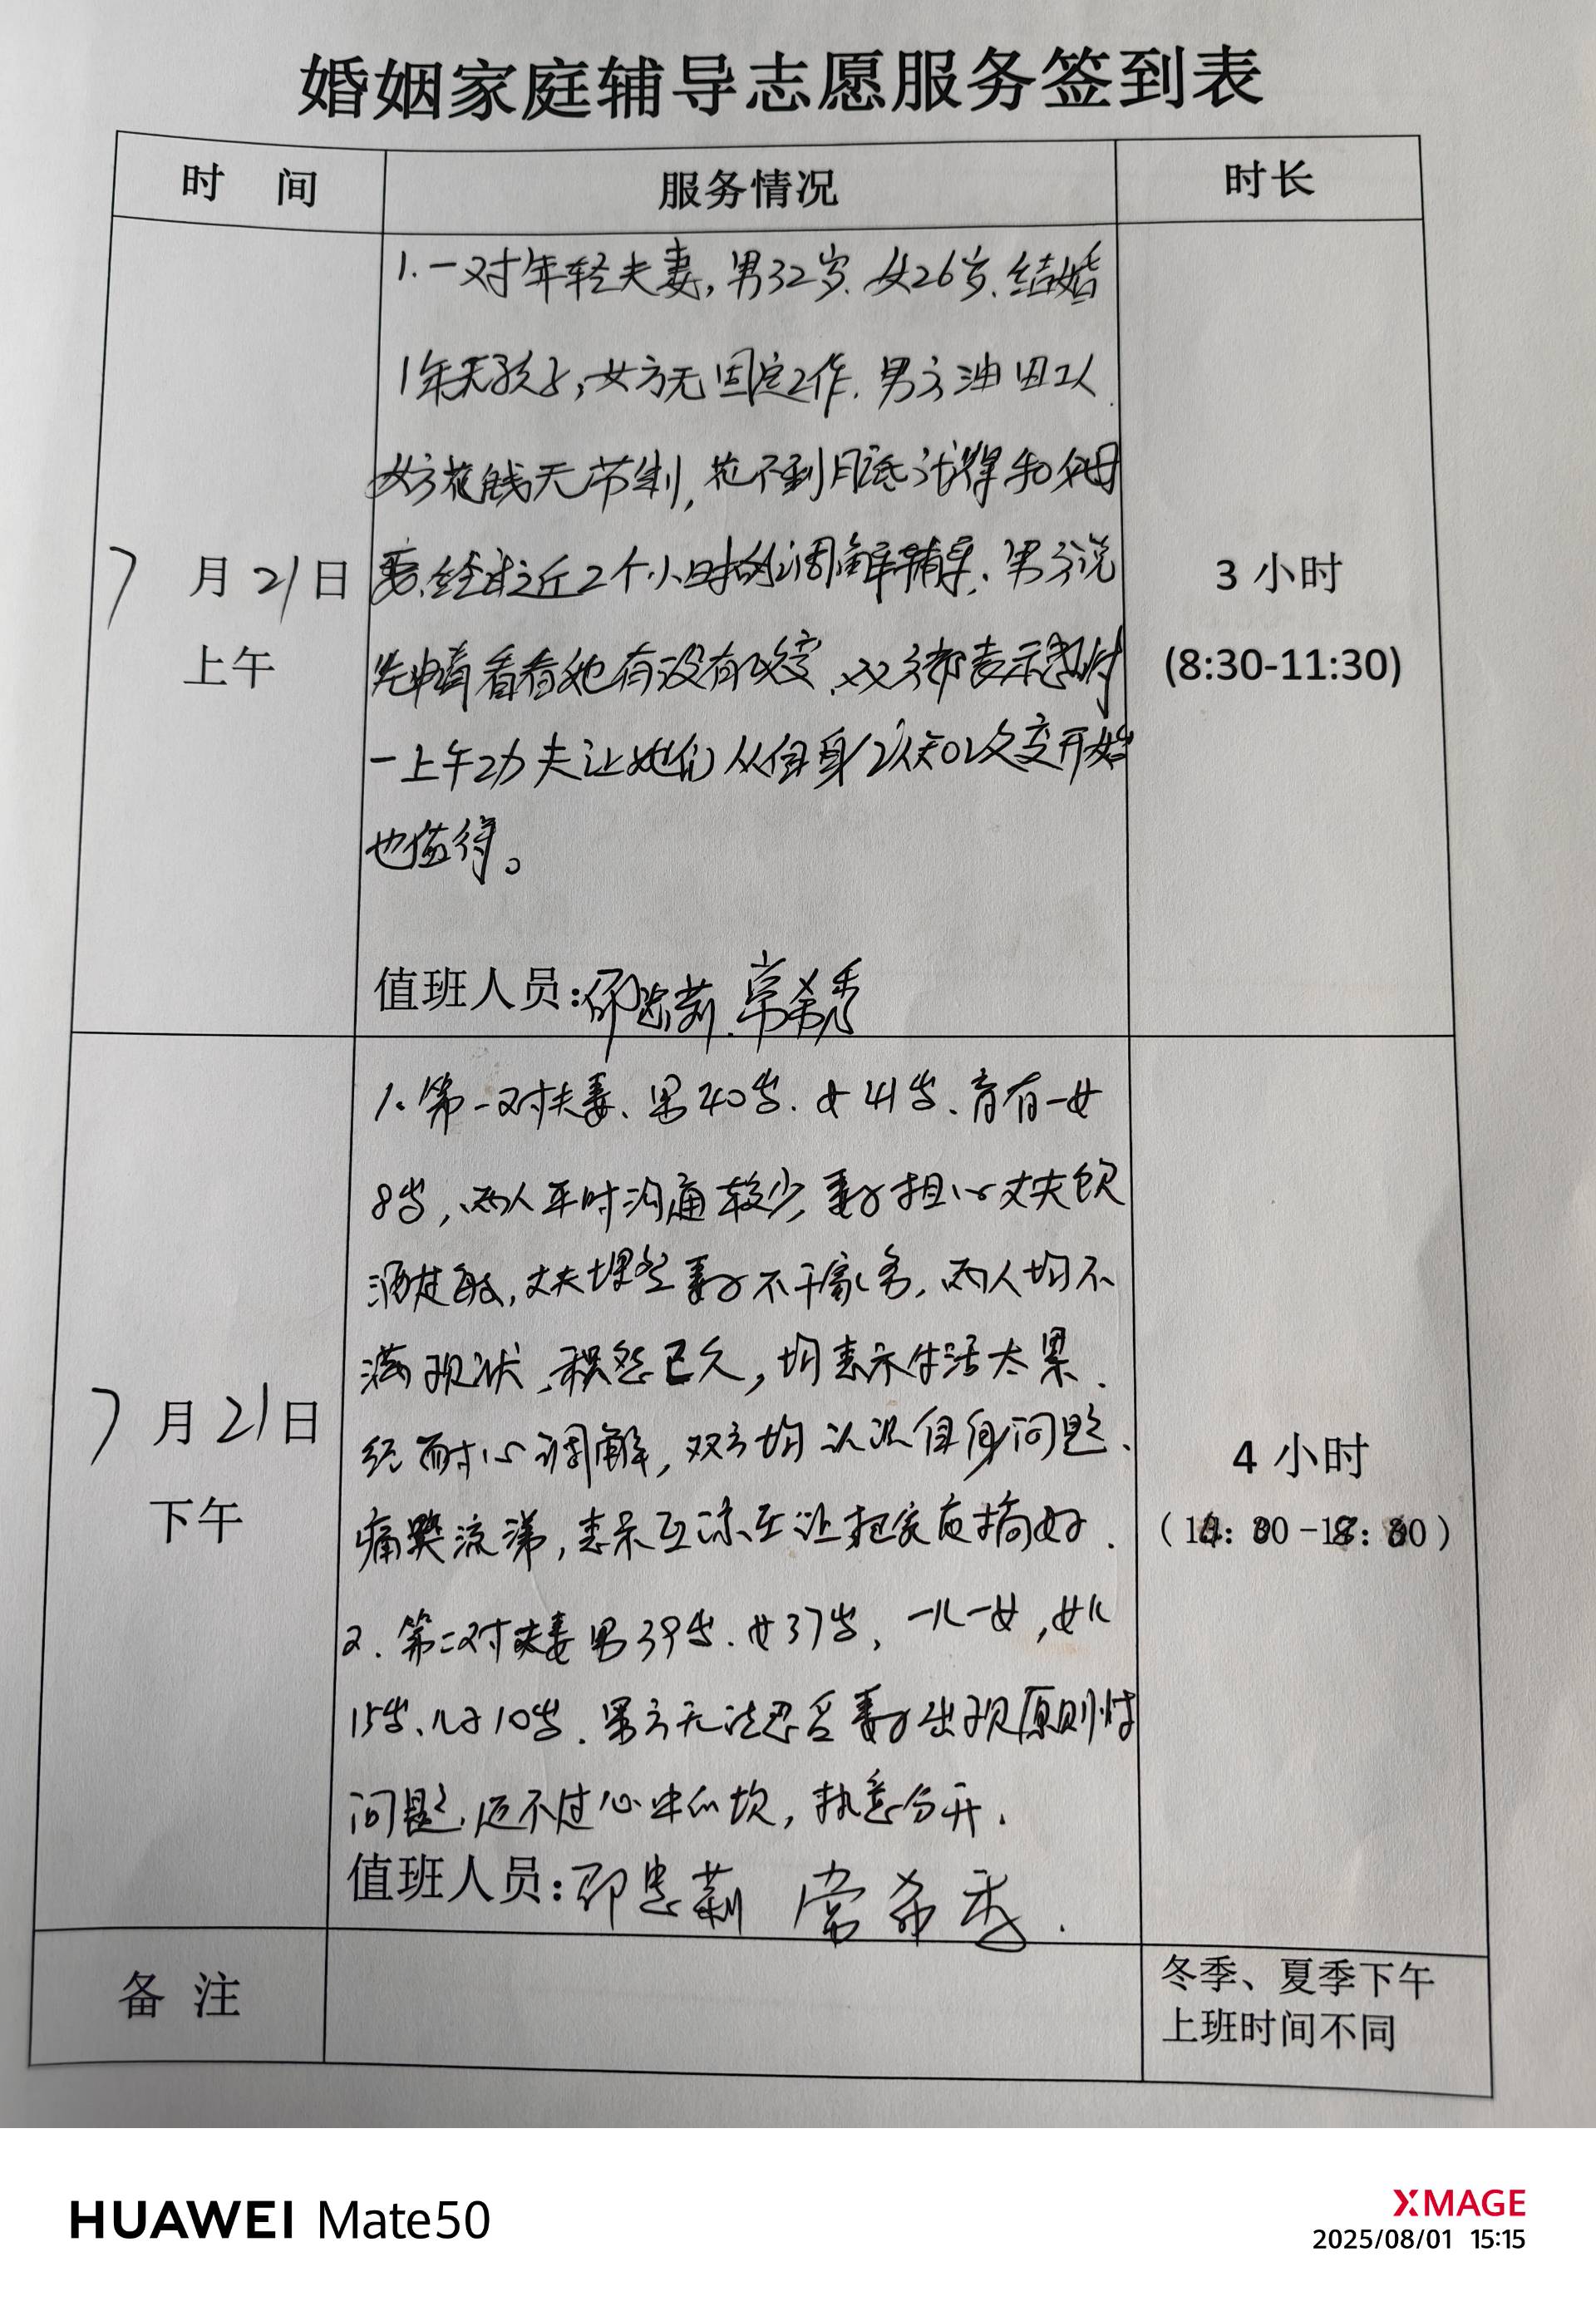 婚姻家庭辅导志愿服务签到表
时 间
服务情况
时长
7月21日
上午
1.一对年轻夫妻,男32岁.女26岁.结婚
1年无孩子,女方无固定工作.男方油田工人.
女方花钱无节制,花不到月底就得和父母
要.经过近2个小时的调解辅导.男方说
先申请看看她有没有改变.双方都表示感谢
一上午功夫让她们从自身认知改变开始
也值得。
值班人员:邵忠莉.常希秀
3 小时
(8:30-11:30)
7月21日
下午
1.第一对夫妻、男40岁.女41岁、育有一女
8岁,两人平时沟通较少,妻子担心丈夫饮
酒过敏,丈夫埋怨妻子不干家务,两人均不
满现状、积怨已久,均表示生活太累.
经耐心调解,双方均认识自身问题、
痛哭流涕,表示互谅互让把家庭搞好.
2.第二对夫妻男39岁.女37岁,一儿一女,女儿
15岁、儿子10岁.男方无法忍受妻子出现原则性
问题,迈不过心中的坎,执意分开.
值班人员:邵忠莉 常希秀.
4 小时
备 注
冬季、夏季下午
上班时间不同
HUAWEI Mate50
XMAGE
2025/08/01 15:15